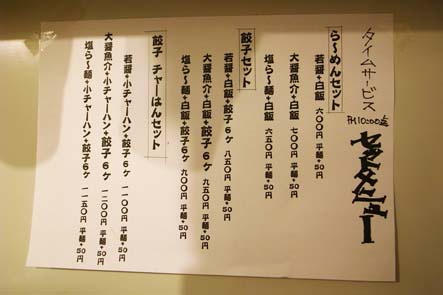 タイムサービス
PM10:00迄
セットメニュー
らーめんセット
若醤+白飯 六〇〇円 平麺+50円
大醤魚介+白飯 七〇〇円 平麺+50円
塩らー麺+白飯 六五〇円 平麺+50円
餃子セット
若醤+白飯+餃子6ヶ 八五〇円 平麺+50円
大醤魚介+白飯+餃子6ヶ 九五〇円 平麺+50円
塩らー麺+白飯+餃子6ヶ 九〇〇円 平麺+50円
餃子 チャーはんセット
若醤+小チャーハン+餃子6ヶ 一一〇〇円 平麺+50円
大醤魚介+小チャーハン+餃子6ヶ 一二〇〇円 平麺+50円
塩らー麺+小チャーハン+餃子6ヶ 一一五〇円 平麺+50円